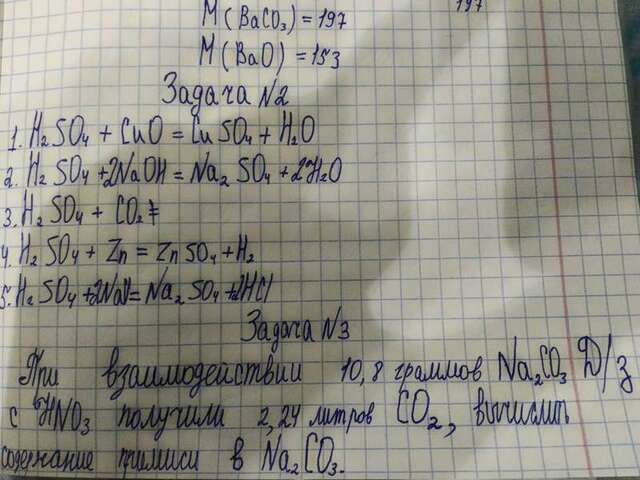 M(BaCO₃) = 197
197
M(BaO) = 153
Задача N2
1. H₂SO₄ + CuO = CuSO₄ + H₂O
2. H₂SO₄ + 2NaOH = Na₂SO₄ + 2H₂O
3. H₂SO₄ + CO₂ ≠
4. H₂SO₄ + Zn = ZnSO₄ + H₂
5. H₂SO₄ + = Na₂SO₄ + 2HCl
Задача N3
При взаимодействии 10,8 граммов Na₂CO₃ Д/з
с HNO₃ получили 2,24 литров CO₂, вычислить
содержание примиси в Na₂CO₃.